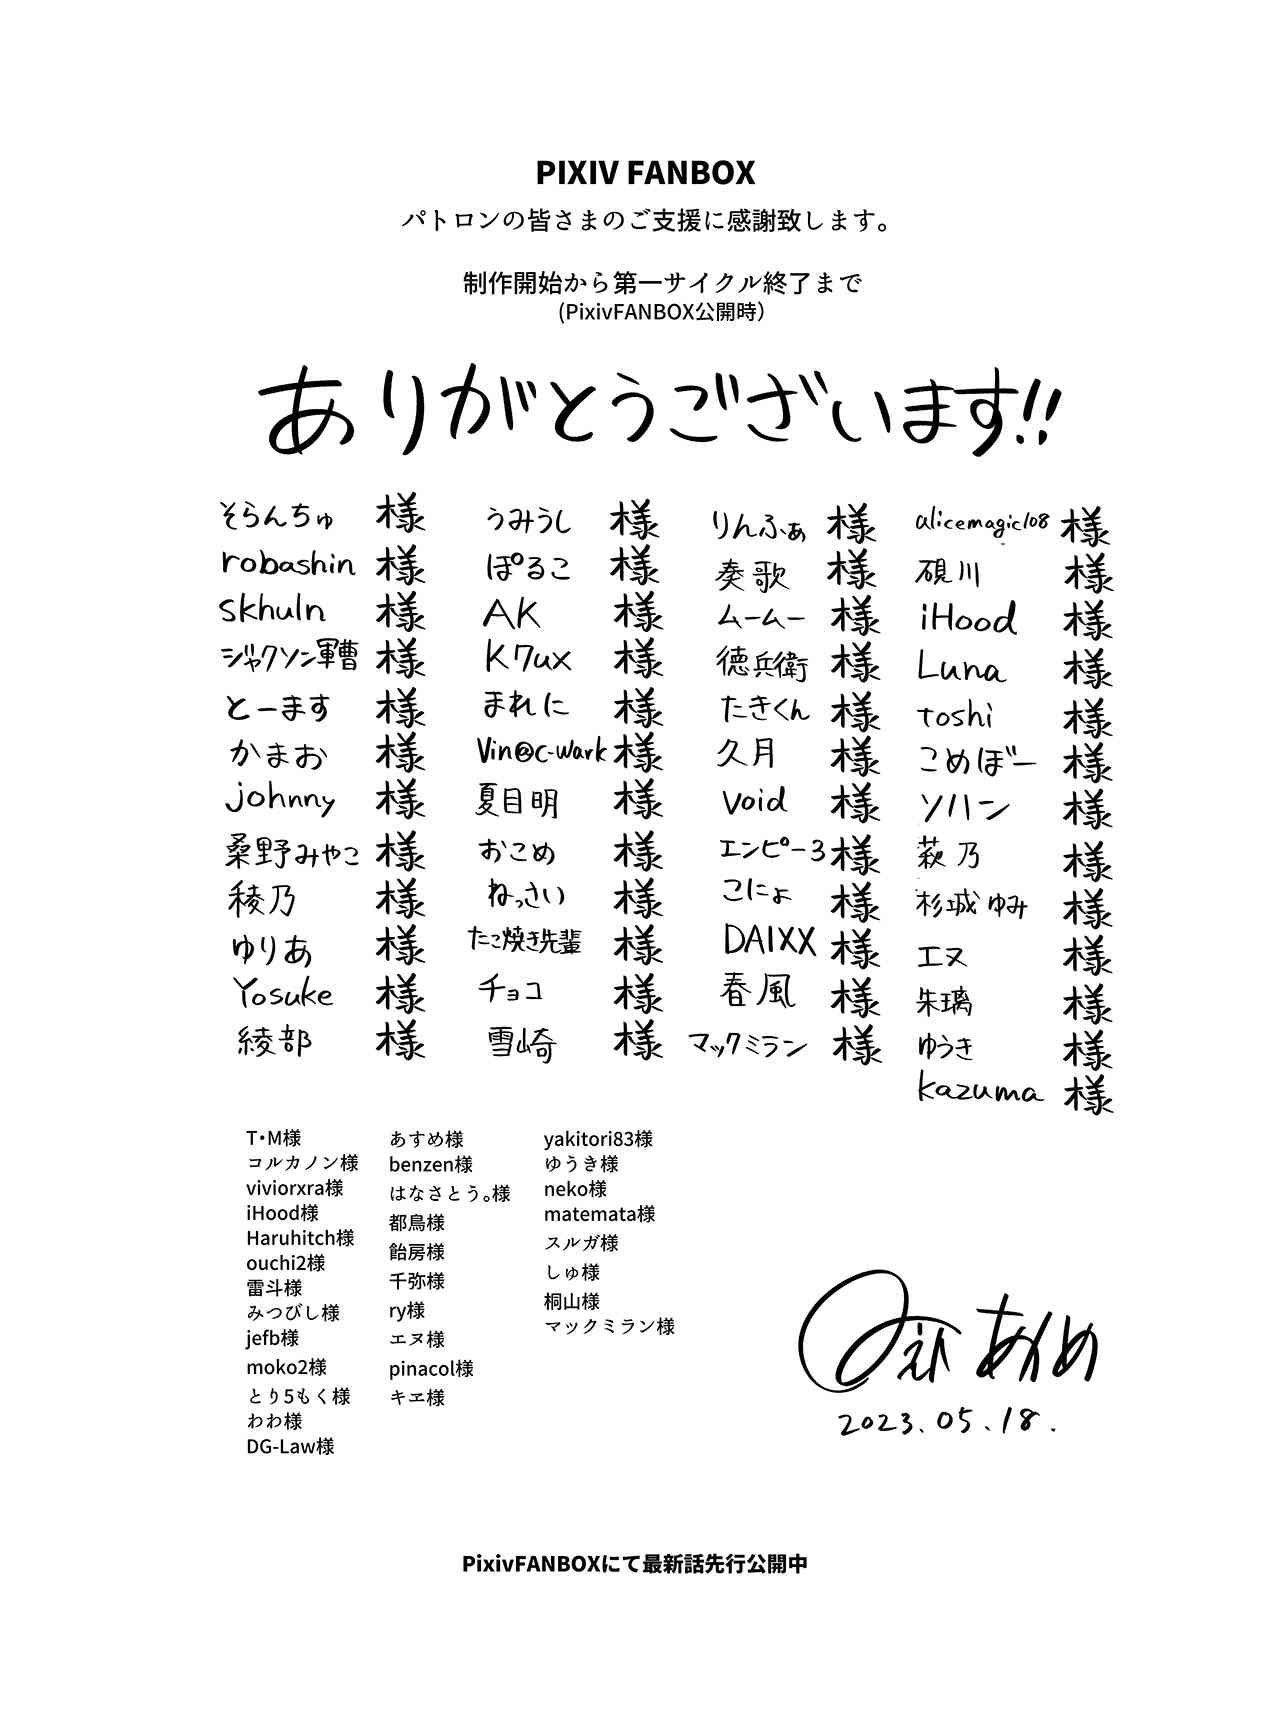 PIXIV FANBOX
パトロンの皆さまのご支援に感謝致します。
制作開始から第一サイクル終了まで
(PixivFANBOX公開時)
ありがとうございます!!
そらんちゅ 様
robashin 様
skhuln 様
ジャクソン軍曹 様
とーます 様
かまお 様
johnny 様
桑野みやこ 様
稜乃 様
ゆりあ 様
Yosuke 様
綾部 様
うみうし 様
ぽるこ 様
AK 様
K7ux 様
まれに 様
Vin@c-wark 様
夏目明 様
おこめ 様
ねっさい 様
たこ焼き先輩 様
チョコ 様
雪崎 様
りんふぁ 様
奏歌 様
ムームー 様
徳兵衛 様
たきくん 様
久月 様
void 様
エンピ-3 様
こにょ 様
DAIXX 様
春風 様
マックミラン 様
alicemagic108 様
硯川 様
iHood 様
Luna 様
toshi 様
こめぼー 様
ソハン 様
萩乃 様
杉城ゆみ 様
エヌ 様
朱璃 様
ゆうき 様
kazuma 様
T・M様
コルカノン様
viviorxra様
iHood様
Haruhitch様
ouchi2様
雷斗様
みつびし様
jefb様
moko2様
とり5もく様
わわ様
DG-Law様
あすめ様
benzen様
はなさとう。様
都鳥様
飴房様
千弥様
ry様
エヌ様
pinacol様
キヱ様
yakitori83様
ゆうき様
neko様
matemata様
スルガ様
しゅ様
桐山様
マックミラン様
2023.05.18.
PixivFANBOXにて最新話先行公開中